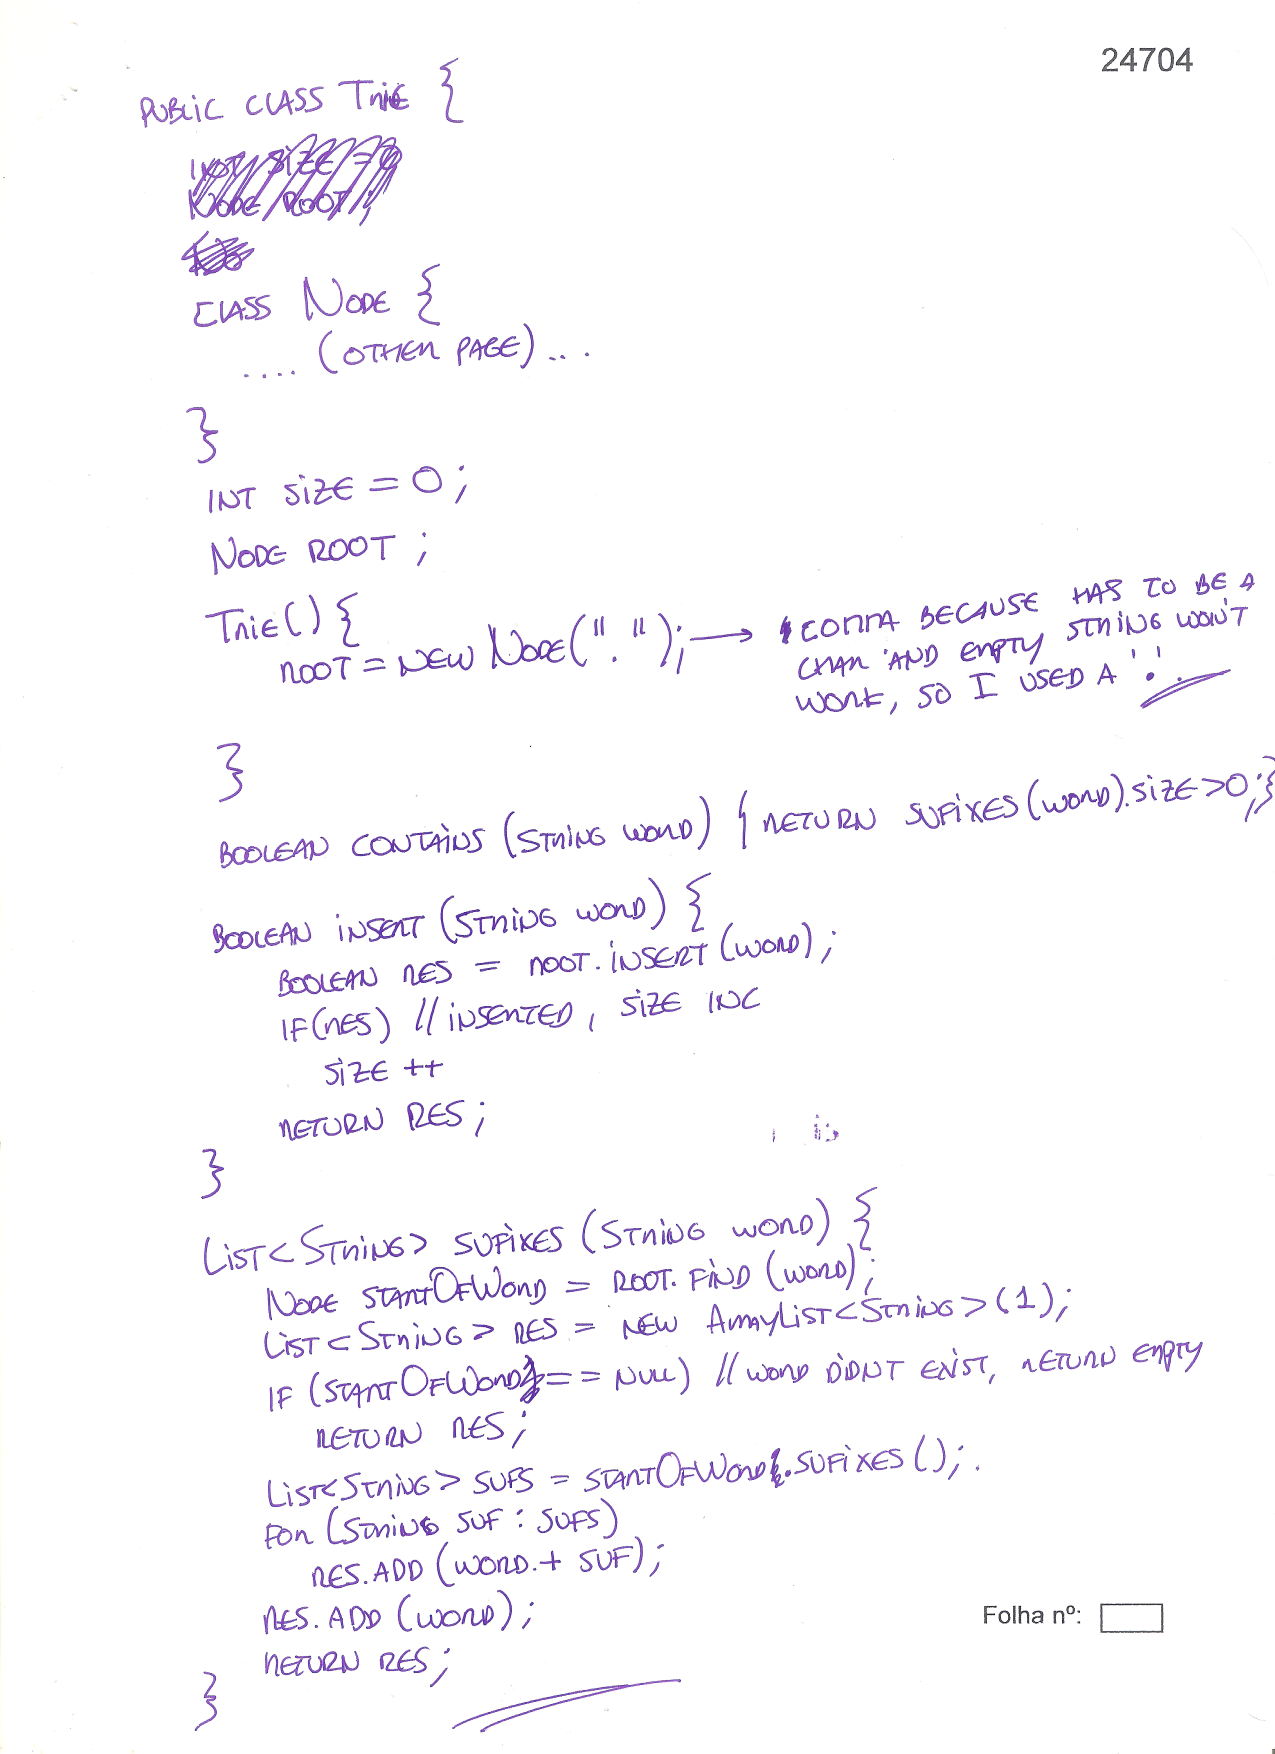 24704
PUBLIC CLASS Trie {
INT SIZE = 0
NODE ROOT ;
CLASS NODE {
.... (OTHER PAGE) ...
}
INT SIZE = 0 ;
NODE ROOT ;
Trie() {
ROOT = NEW NODE("."); → COMMA BECAUSE HAS TO BE A
CHAR AND EMPTY STRING WON'T
WORK, SO I USED A '.'
}
BOOLEAN CONTAINS (STRING WORD) { RETURN SUFIXES(WORD).SIZE>0;}
BOOLEAN INSERT (STRING WORD) {
BOOLEAN RES = ROOT.INSERT (WORD);
IF(RES) // INSERTED, SIZE INC
SIZE ++
RETURN RES;
}
LIST<STRING> SUFIXES (STRING WORD) {
NODE STARTOFWORD = ROOT.FIND (WORD);
LIST<STRING> RES = NEW ARRAYLIST<STRING>(1);
IF (STARTOFWORD == NULL) // WORD DIDNT EXIST, RETURN EMPTY
RETURN RES;
LIST<STRING> SUFS = STARTOFWORD.SUFIXES();
FOR (STRING SUF : SUFS)
RES.ADD (WORD.+ SUF);
RES.ADD (WORD);
RETURN RES;
}
Folha nº: